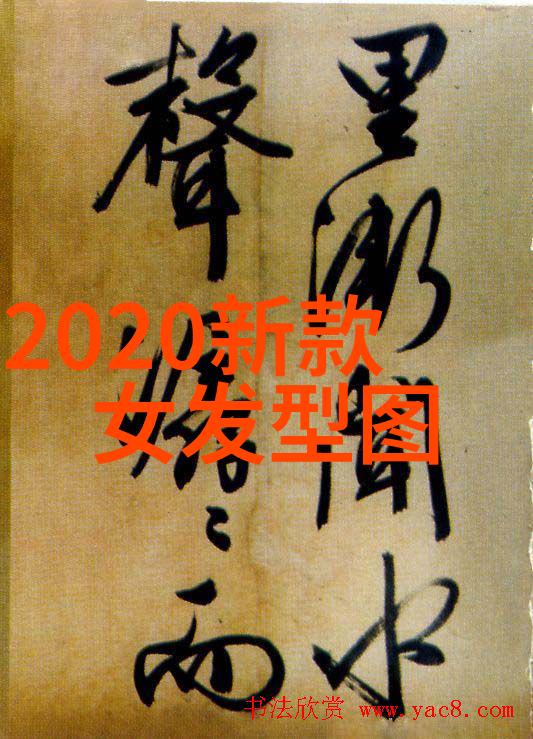 里漸聞水
聲潺〻而
2020新款
女发型图
书法欣赏 www.yac8.com